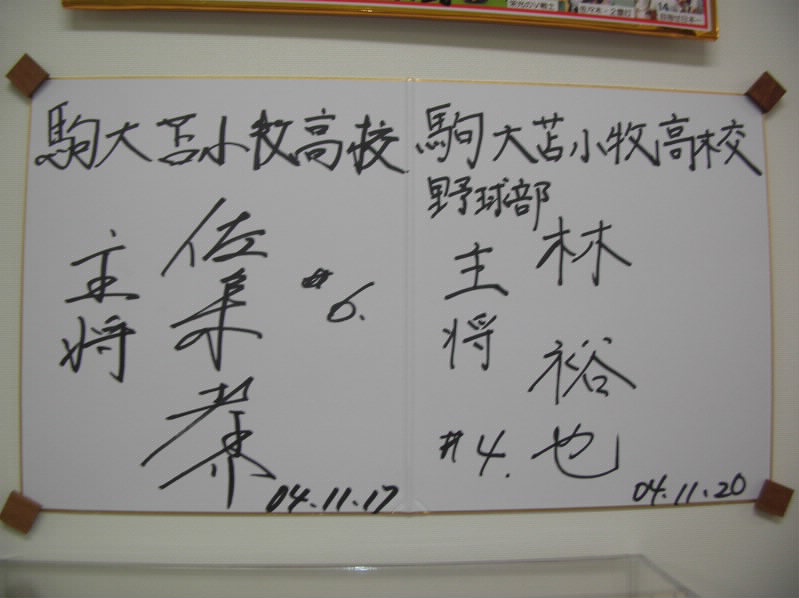 栄光のV戦士
駒大苫小牧高校
#6.
佐々木孝介
主将
04.11.17
駒大苫小牧高校
野球部
林裕也
主将
#4.
04.11.20